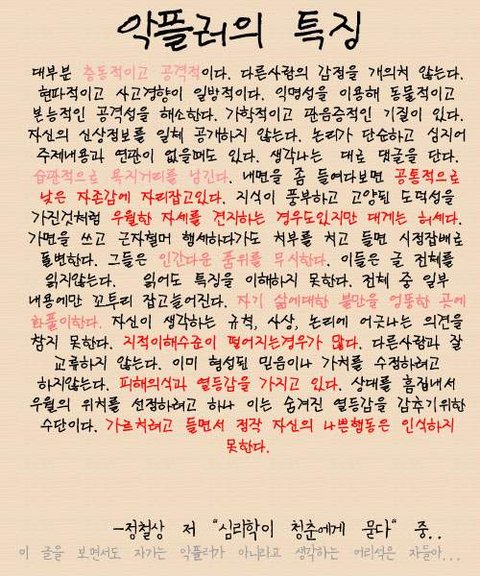 악플러의 특징
대부분 충동적이고 공격적이다. 다른사람의 감정을 개의치 않는다.
현파적이고 사고경향이 일방적이다. 익명성을 이용해 동물적이고
본능적인 공격성을 해소한다. 가학적이고 관음증적인 기질이 있다.
자신의 신상정보를 일체 공개하지 않는다. 논리가 단순하고 심지어
주제내용과 연관이 없을때도 있다. 생각나는 대로 댓글을 단다.
습관적으로 욕지거리를 남긴다. 내면을 좀 들여다보면 공통적으로
낮은 자존감에 자리잡고있다. 지식이 풍부하고 고양된 도덕성을
가진것처럼 우월한 자세를 견지하는 경우도있지만 대게는 허세다.
가면을 쓰고 근자혈머 행세하다가도 처부를 처고 들면 시정잡배로
돌변한다. 그들은 인간다운 품위를 무시한다. 이들은 글 전체를
읽지않는다. 읽어도 특징을 이해하지 못한다. 전체 중 일부
내용에만 꼬투리 잡고늘어진다. 자기 삶에대한 불만을 엉뚱한 곳에
화풀이한다. 자신이 생각하는 규칙, 사상, 논리에 어긋나는 의견을
참지 못한다. 지적이해수준이 떨어지는경우가 많다. 다른사람과 잘
교류하지 않는다. 이미 형성된 믿음이나 가치를 수정하려고
하지않는다. 피해의식과 열등감을 가지고 있다. 상대를 흠집내서
우월의 위처를 선정하려고 하나 이는 숨겨진 열등감을 감추기위한
수단이다. 가르쳐려고 들면서 정작 자신의 나쁜행동은 인식하지
못한다.
-정철상 저 "심리학이 청춘에게 묻다" 중..
이 글을 보면서도 자기는 악플러가 아니라고 생각하는 어리석은 자들아...